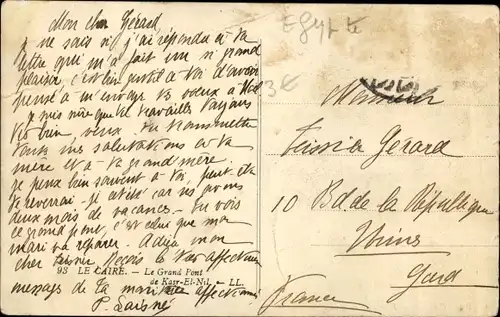 Mon cher Gérard
je ne sais si j'ai répondu à ta
lettre qui m'a fait un si grand
plaisir, c'est bien gentil à toi d'avoir
pensé à m'envoyer tes vœux à Noël
je suis sûre que tu travailles toujours
très bien, veux-tu transmettre
toutes mes salutations à ta
mère et à ta grand'mère.
je pense bien souvent à toi, peut-être
te reverrai-je cet été car ns avons
deux mois de vacances - Tu vois
ce grand pont, c'est celui que mon
mari va réparer. A dieu mon
cher Reçois le très affectueux
message de ta
P. Laisné
93 LE CAIRE. - Le Grand Pont
de Kasr-El-Nil. - LL.
Egypte
3€
Monsieur
Teissier Gérard
10 Bd. de la République
Nîmes
Gard
France